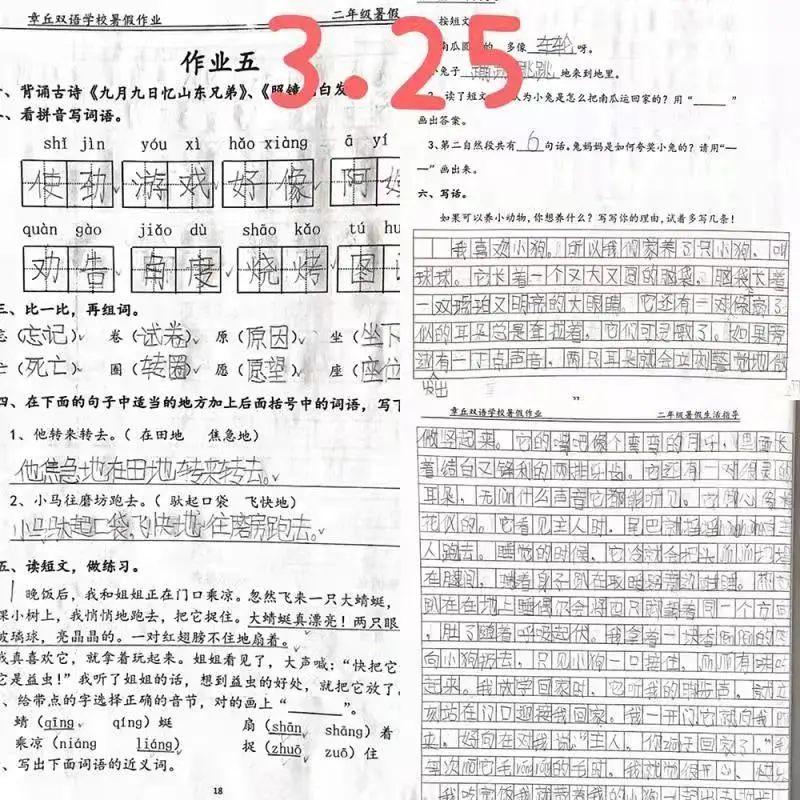 章丘双语学校暑假作业 二年级暑假
3.25
作业五
、背诵古诗《九月九日忆山东兄弟》、《照镜 白发
、看拼音写词语。
shǐ jìn yóu xì hǎo xiàng ā yí
使劲 游戏 好像 阿姨
quàn gào jiǎo dù shāo kǎo tú hu
劝告 角度 烧烤 图
三、比一比，再组词。
忘(忘记) 卷(试卷) 原(原因) 坐(坐下
亡(死亡) 圈(转圈) 愿(愿望) 座(座位
四、在下面的句子中适当的地方加上后面括号中的词语，写下
1、他转来转去。（ 在田地 焦急地）
他焦急地在田地转来转去。
2、小马往磨坊跑去。（ 驮起口袋 飞快地）
小马驮起口袋飞快地往磨房跑去。
五、读短文，做练习。
晚饭后，我和姐姐正在门口乘凉。忽然飞来一只大蜻蜓，
棵小树上，我悄悄地跑去，把它捉住。大蜻蜓真漂亮！两只眼
玻璃球，亮晶晶的。一对红翅膀不住地扇着。
我真喜欢它，就拿着玩起来。姐姐看见了，大声喊：“快把它
它是益虫！”我听了姐姐的话，想到益虫的好处，就把它放了。
、给带点的字选择正确的音节，对的画上“______”。
蜻（qīng qíng）蜓 扇（shān shàng）着
乘凉（niáng liáng） 捉（zhuō zuō）住
、写出下面词语的近义词。
18
按短文
南瓜圆 的，多像 车轮 呀。
小兔子 蹦蹦跳跳 地来到地里。
2、读了短文 认为小兔是怎么把南瓜运回家的？用“______”
画出答案。
3、第二自然段共有 6 句话。兔妈妈是如何夸奖小兔的？请用“—
—”画出来。
六、写话。
如果可以养小动物，你想养什么？写写你的理由，试着多写几条！
我喜欢小狗。所以我们家养了只小狗，叫
球球。它长着一个又大又圆的脑袋，脑袋长着
一双 又明亮的大眼睛。它还有一对像
似的耳朵总是耷拉着，它们可灵敏了。如果旁
边有一丁点声音，两只耳朵就会立刻警觉地
发出
章丘双语学校暑假作业 二年级暑假生活指导
竖起来。它的嘴巴像个弯弯的月牙，里面长
着洁白又锋利的两排牙齿。它还有一对很灵的
耳朵，无论什么声音它都能听见。它
花似的。它看见主人时，尾巴就
人跑去。睡觉的时候，它
在腿间，
趴在在地上睡
，肚子随着呼吸起伏。我拿着一块香
向小狗扔去，只见小狗一口接住，
起来。我放学回家时，它听我的脚步声，就立
刻站在门口迎接我回家。我一开门它就向我
来，好向在对我说“主人，你终于回家了。”
每次 它毛 的毛时，我就
我吃完饭我就带着我的小狗一起出去